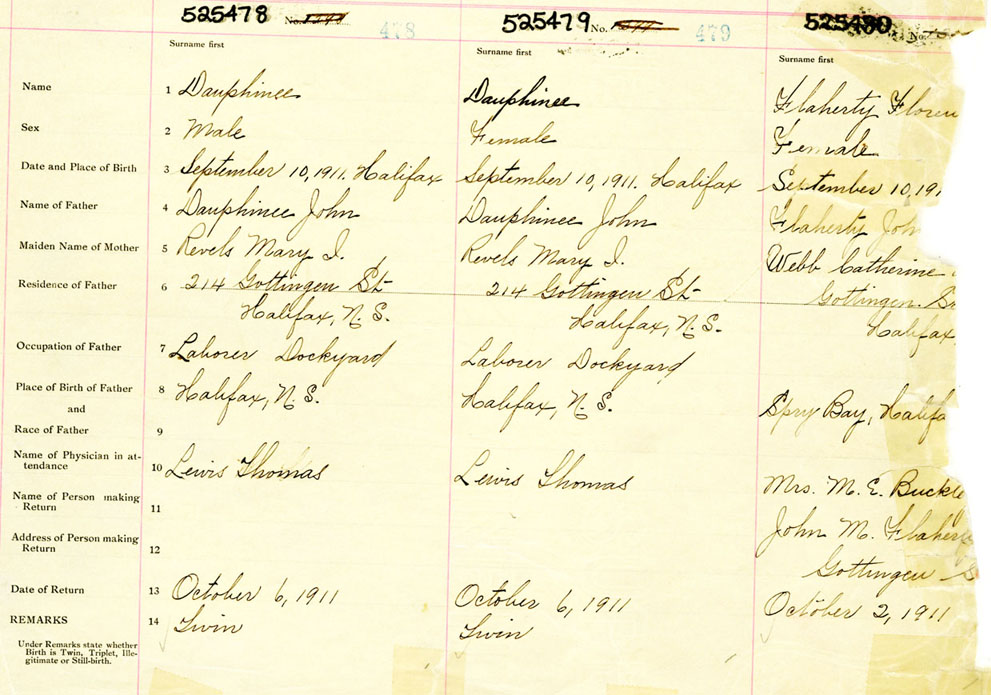 525478 No. 478
525479 No. 479
525480 No.
Surname first Surname first Surname first
Name 1 Dauphinee Dauphinee Flaherty Floren
Sex 2 Male Female Female
Date and Place of Birth 3 September 10, 1911. Halifax September 10, 1911. Halifax September 10, 191
Name of Father 4 Dauphinee John Dauphinee John Flaherty John
Maiden Name of Mother 5 Revels Mary I. Revels Mary I. Webb Catherine
Residence of Father 6 214 Gottingen St 214 Gottingen St Gottingen. St
Halifax, N. S. Halifax, N. S. Halifax
Occupation of Father 7 Laborer Dockyard Laborer Dockyard
Place of Birth of Father 8 Halifax, N. S. Halifax, N. S. Spry Bay, Halifa
and
Race of Father 9
Name of Physician in at-
tendance 10 Lewis Thomas Lewis Thomas Mrs. M. E. Buckle
Name of Person making
Return 11 John M. Flaherty
Address of Person making
Return 12 Gottingen S
Date of Return 13 October 6, 1911 October 6, 1911 October 2, 1911
REMARKS 14 Twin Twin
Under Remarks state whether
Birth is Twin, Triplet, Ille-
gitimate or Still-birth.